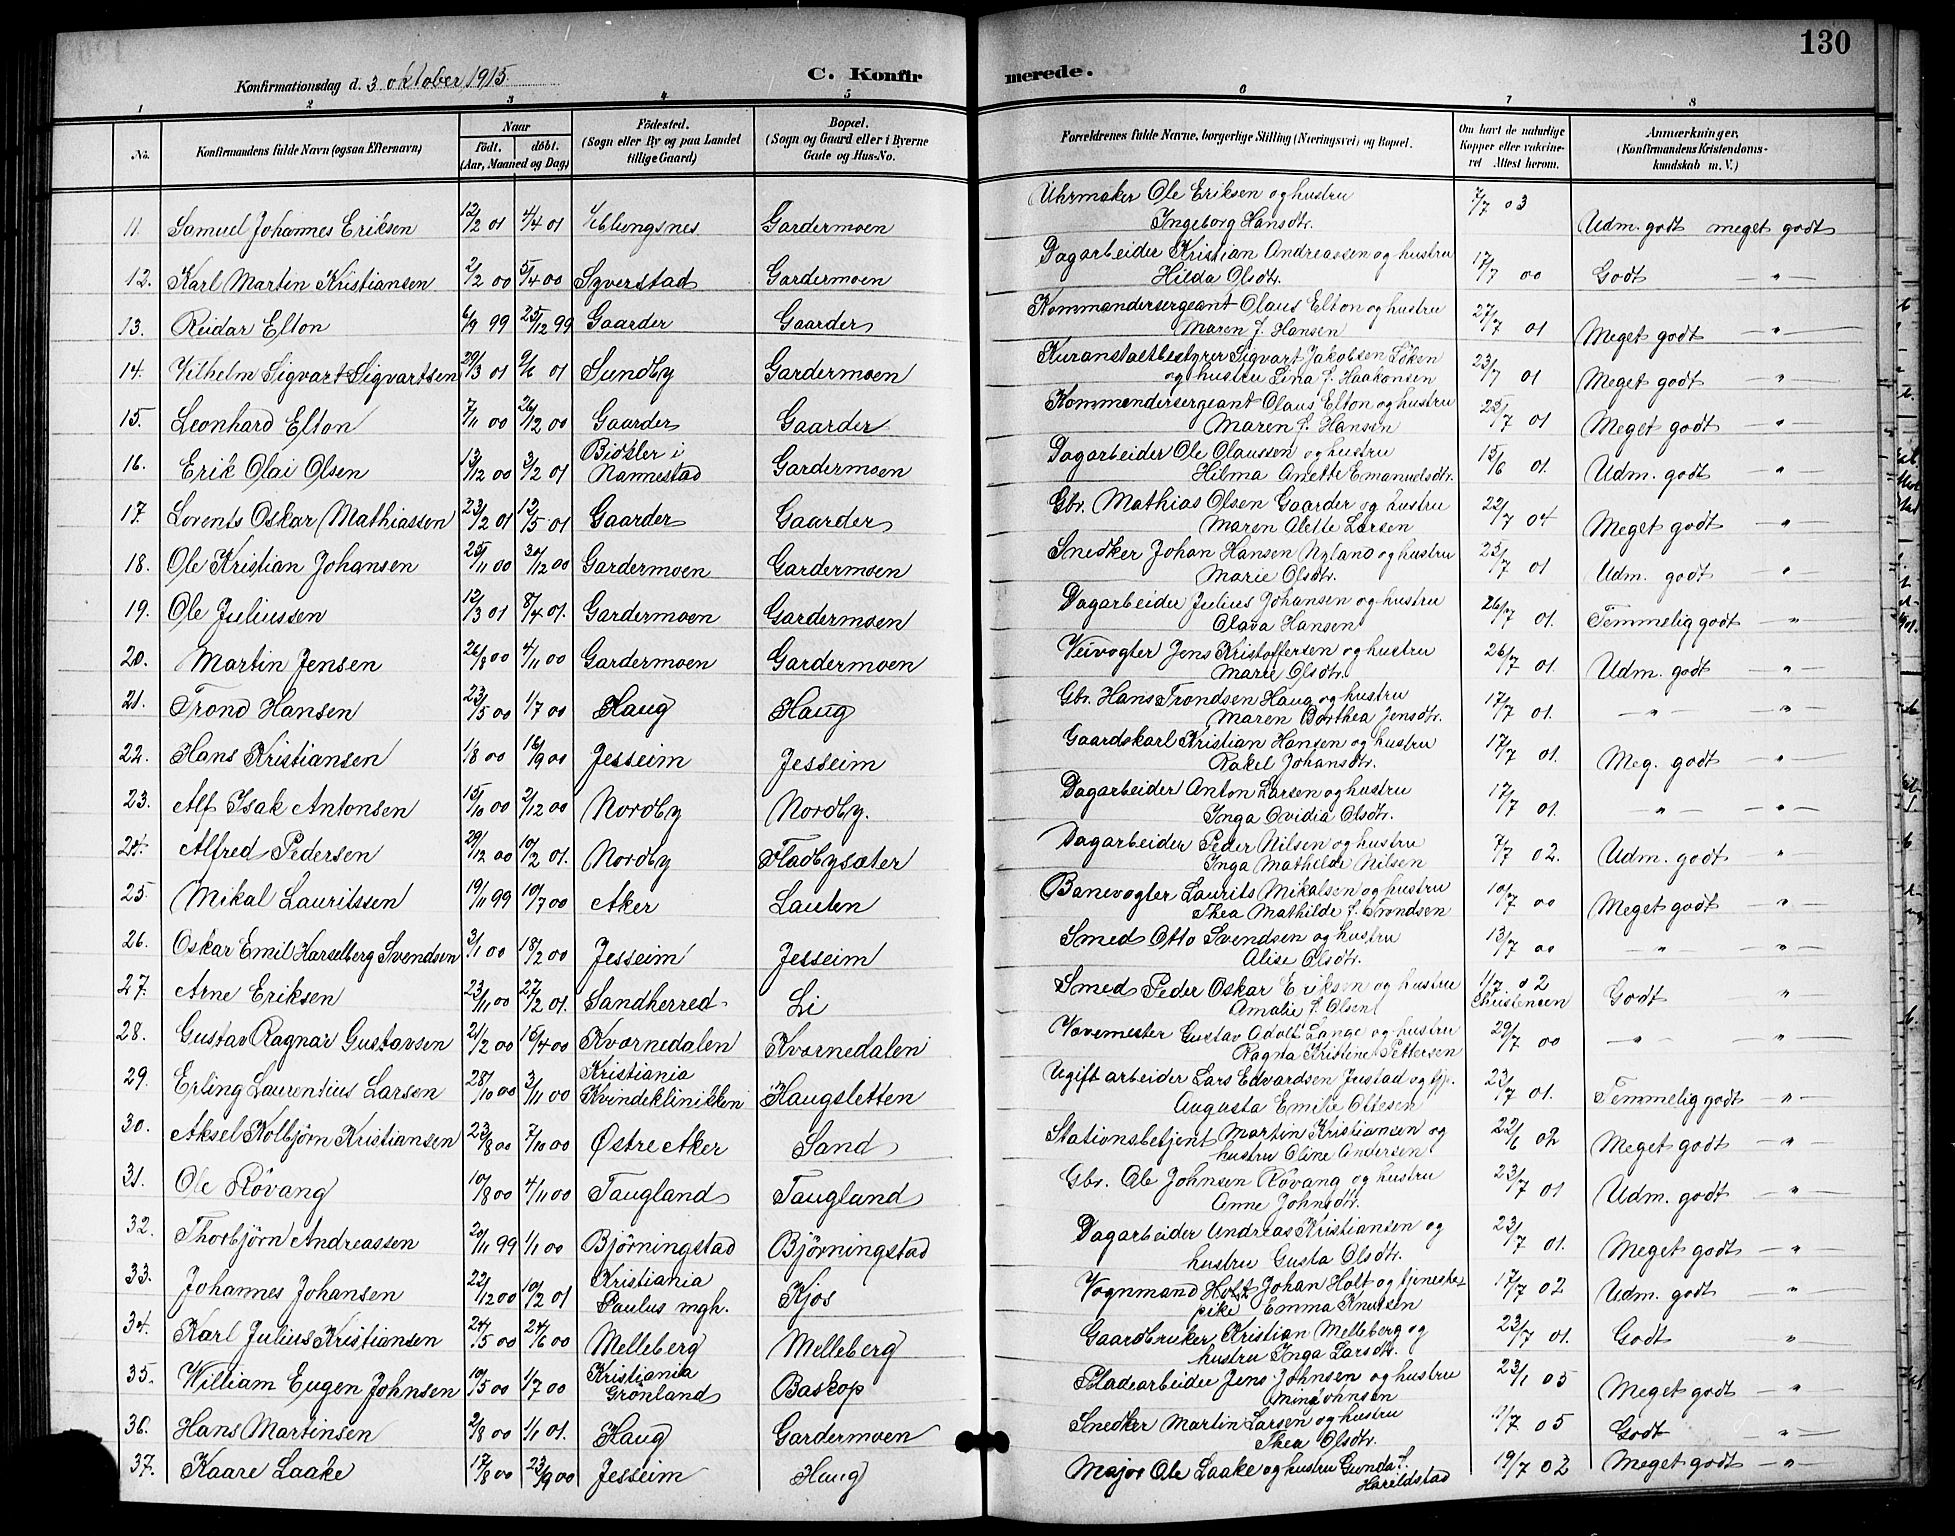 130
Konfirmationsdag d. 3 oktober 1915.
C. Konfirmerede.
1 2 3 4 5 6 7 8
No.
Konfirmandens fulde Navn (ogsaa Efternavn)
Naar
födt. döbt.
(Aar, Maaned og Dag)
Födested.
(Sogn eller By og paa Landet
tillige Gaard)
Bopæl.
(Sogn og Gaard eller i Byerne
Gade og Hus-No.
Forældrenes fulde Navne, borgerlige Stilling (Næringsvei) og Bopæl.
Om havt de naturlige
Kopper eller vakcine-
ret Attest herom.
Anmærkninger.
(Konfirmandens Kristendoms-
kundskab m. V.)
11. Samuel Johannes Eriksen 12/2 01 4/4 01 Eblungsnes Gardermoen Uhrmaker Ole Eriksen og hustru
Ingeborg Hansdtr. 7/7 03 Udm. godt meget godt
12. Karl Martin Kristiansen 2/2 00 5/4 00 Syverstad Gardermoen Dagarbeider Kristian Andreassen og hustru
Hilda Olsdtr. 17/7 00 Godt — " —
13. Reidar Elton 6/9 99 25/12 99 Gaarder Gaarder Kommandersergeant Olaus Elton og hustru
Maren f. Hansen 27/7 01 Meget godt — " —
14. Vilhelm Sigvart Sigvartsen 29/3 01 9/6 01 Sundby Gardermoen Kuranstaltbestyrer Sigvart Jakobsen Löken
og hustru Lina f. Haakonsen 23/7 01 Meget godt — " —
15. Leonhard Elton 7/11 00 26/12 00 Gaarder Gaarder Kommandersergeant Olaus Elton og hustru
Maren f. Hansen 25/7 01 Meget godt "
16. Erik Olai Olsen 13/12 00 3/2 01 Bidsler i
Nannestad Gardermoen Dagarbeider Ole Olaussen og hustru
Hilma Anette Emanuelsdtr. 15/6 01. Udm. godt "
17. Lorents Oskar Mathiassen 23/2 01 12/5 01 Gaarder Gaarder Gbr. Mathias Olsen Gaarder og hustru
Maren Alette Larsen 22/7 04 Meget godt — " —
18. Ole Kristian Johansen 25/11 00 30/12 00 Gardermoen Gardermoen Snedker Johan Hansen Nyland og hustru
Marie Olsdtr. 25/7 01 Udm. godt — " —
19. Ole Juliussen 12/3 01 8/4 01. Gardermoen Gardermoen Dagarbeider Julius Johansen og hustru
Olava Hansen 26/7 01. Temmelig godt — " —
20. Martin Jensen 26/8 00 4/11 00 Gardermoen Gardermoen Veivogter Jens Kristoffersen og hustru
Marie Olsdtr. 26/7 01. Udm. godt — " —
21. Trond Hansen 23/5 00 1/7 00 Haug Haug Gbr. Hans Trondsen Haug og hustru
Maren Dorthea Jensdtr. 17/7 01. — " — — " —
22. Hans Kristiansen 1/8 00 16/9 00 Jesseim Jesseim Gaardskarl Kristian Hansen og hustru
Rakel Johansdtr. 17/7 01. Meg. godt — " —
23. Alf Isak Antonsen 15/10 00 2/12 00 Nordby Nordby. Dagarbeider Anton Larsen og hustru
Inga Ovidia Olsdtr. 17/7 01. — " — — " —
24. Alfred Pedersen 29/12 00 10/2 01. Nordby Fladbysæter Dagarbeider Peder Nilsen og hustru
Inga Mathilde Nilsen 7/7 02. Udm. godt "
25. Mikal Lauritssen 19/11 99 10/7 00 Aker Lauten Banevogter Laurits Mikalsen og hustru
Thea Mathilde f. Trondsen 10/7 00 Meget godt — " —
26. Oskar Emil Harselberg Svendsen 3/1 00 18/2 00 Jesseim Jesseim Smed Otto Svendsen og hustru
Alise Olsdtr. 13/7 00 — " — — " —
27. Arne Eriksen 23/11 00 27/2 01. Sandherred Li Smed Peder Oskar Eriksen og hustru
Amalie f. Olsen 1/7 02
Christensen Godt "
28. Gustav Ragnar Gustavsen 21/2 00 16/4 00 Kværnedalen Kværnedalen Vævemester Gustav Adolf Lange og hustru
Ragna Kristine Pettersen 29/7 00 — " — — " —
29. Erling Laurentius Larsen 28/10 00 3/11 00 Kristiania
Kvindeklinikken Haugsletten Ugift arbeider Lars Edvardsen Justad og tjp.
Augusta Emilie Ottesen 23/7 01. Temmelig godt — " —
30. Aksel Kolbjörn Kristiansen 23/8 00 7/10 00 Østre Aker Sand Stationsbetjent Martin Kristiansen og
hustru Oline Andersen 22/6 02 Meget godt — " —
31. Ole Rövang 10/8 00 4/11 00 Taugland Taugland Gbr. Ole Johnsen Rövang og hustru
Anne Johnsdtr. 23/7 01 Udm. godt — " —
32. Thorbjörn Andreassen 20/11 99 1/1 00 Björningstad Björningstad Dagarbeider Andreas Kristiansen og
hustru Gusta Olsdtr. 23/7 01. Meget godt — " —
33. Johannes Johansen 22/12 00 10/2 01 Kristiania
Paulus mgh. Kjos Vognmand Holt Johan Holt og tjeneste-
pike Emma Knutsen 17/7 02 Udm. godt — " —
34. Karl Julius Kristiansen 24/5 00 24/6 00 Melleberg Melleberg Gaardbruker Kristian Melleberg og
hustru Inga Larsdtr. 23/7 01. Godt "
35. William Eugen Johnsen 10/5 00 1/7 00 Kristiania
Grönland Baskop Pladearbeider Jens Johnsen og hustru
23/1 05 Meget godt — " —
36. Hans Martinsen 2/8 00 1/1 01. Haug Gardermoen Snedker Martin Larsen og hustru
Thea Olsdtr. 11/7 05 Godt — " —
37. Kaare Laake 17/8 00 23/9 00 Jesseim Haug Major Ole Laake og hustru Gunda f.
Hareldstad 19/7 02 Meget godt — " —